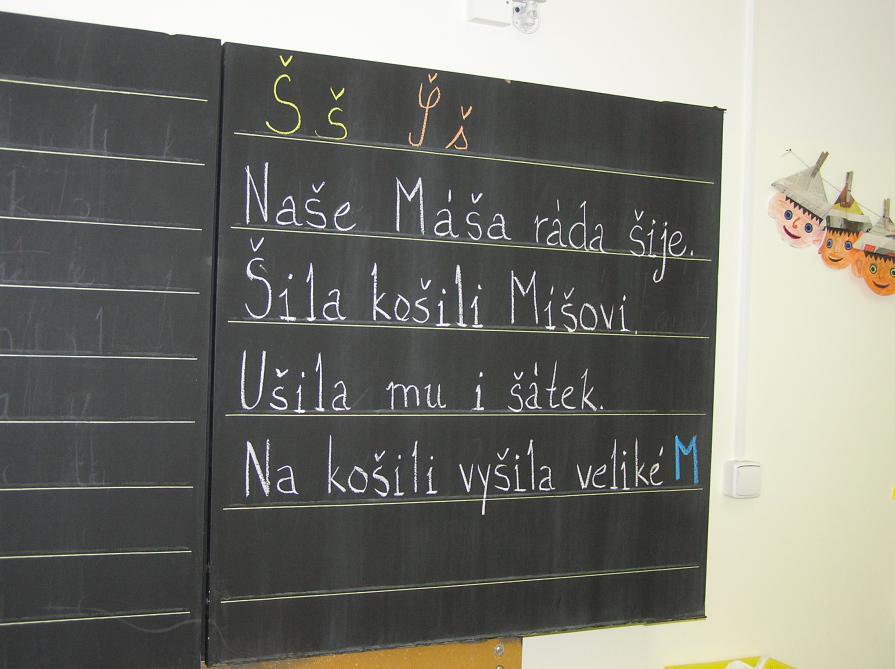 Š š Š š
Naše Máša ráda šije.
Šila košili Mišovi.
Ušila mu i šátek.
Na košili vyšila veliké M